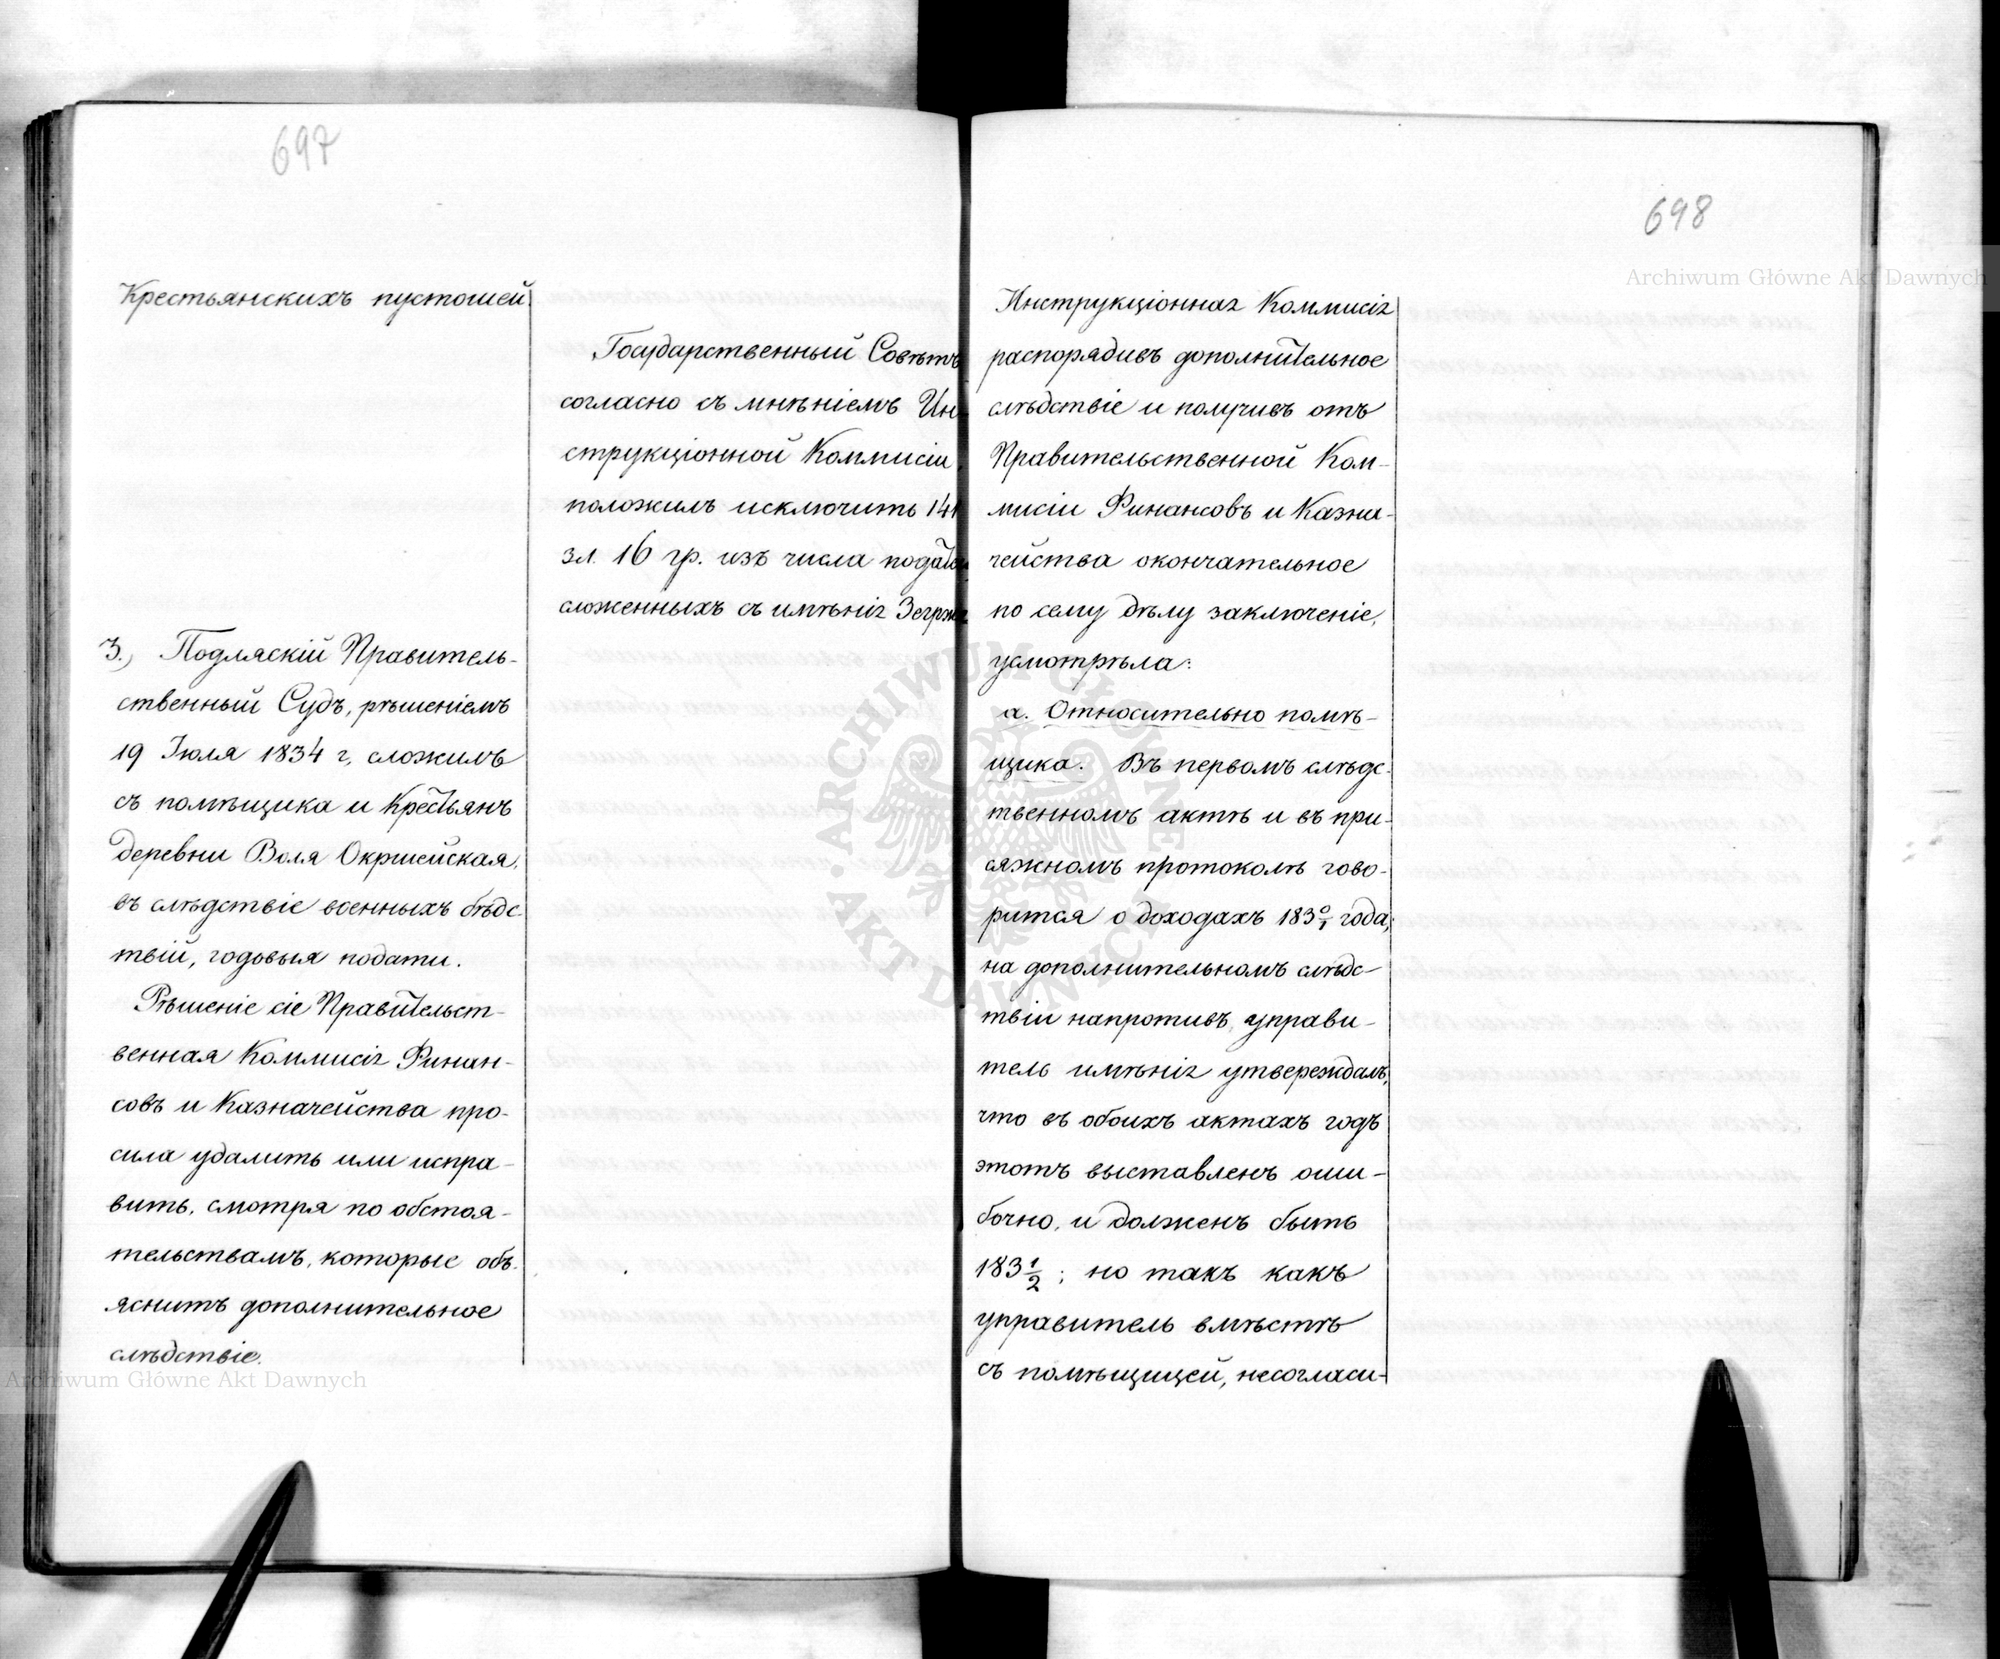 697
Крестьянскихъ пустошей
3.) Подляскій Правитель-
ственный Судъ, рѣшеніемъ
19 Іюля 1834 г, сложилъ
съ помѣщика и Крестьянъ
деревни Воля Окршейская,
въ слѣдствіе военныхъ бѣдс-
твій, годовыя подати.
Рѣшеніе сіе Правительст-
венная Коммисія Финан-
совъ и Казначейства про-
сила удалить или испра-
вить, смотря по обстоя-
тельствамъ, которые объ-
яснитъ дополнительное
слѣдствіе.
Государственный Совѣтъ
согласно съ мнѣніемъ Ин-
струкціонной Коммисіи,
положилъ исключить 141
зл. 16 гр. изъ числа податей
сложенныхъ съ имѣнія
698
Инструкціонная Коммисія
распорядивъ дополнительное
слѣдствіе и получивъ отъ
Правительственной Ком-
мисіи Финансовъ и Казна-
чейства окончательное
по сему дѣлу заключеніе,
усмотрѣла:
а. Относительно помѣ-
щика. Въ первомъ слѣдс-
твенномъ актѣ и въ при-
сяжномъ протоколѣ гово-
рится о доходахъ 183 0/1 года,
на дополнительномъ слѣдс-
твіи напротивъ, управи-
тель имѣнія утверждалъ,
что въ обоихъ актахъ годъ
этотъ выставленъ оши-
бочно, и долженъ быть
183 1/2; но такъ какъ
управитель вмѣстѣ
съ помѣщицей, несогласи-
Archiwum Główne Akt Dawnych
Archiwum Główne Akt Dawnych
ARCHIWUM GŁÓWNE AKT DAWNYCH